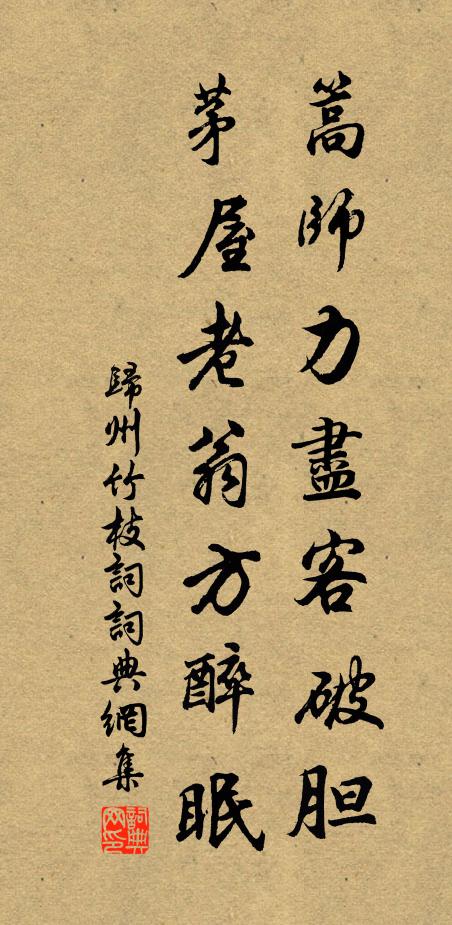 篙師力盡客破胆
茅屋老翁方醉眠
歸州竹枝詞詞典網集
詞典網印